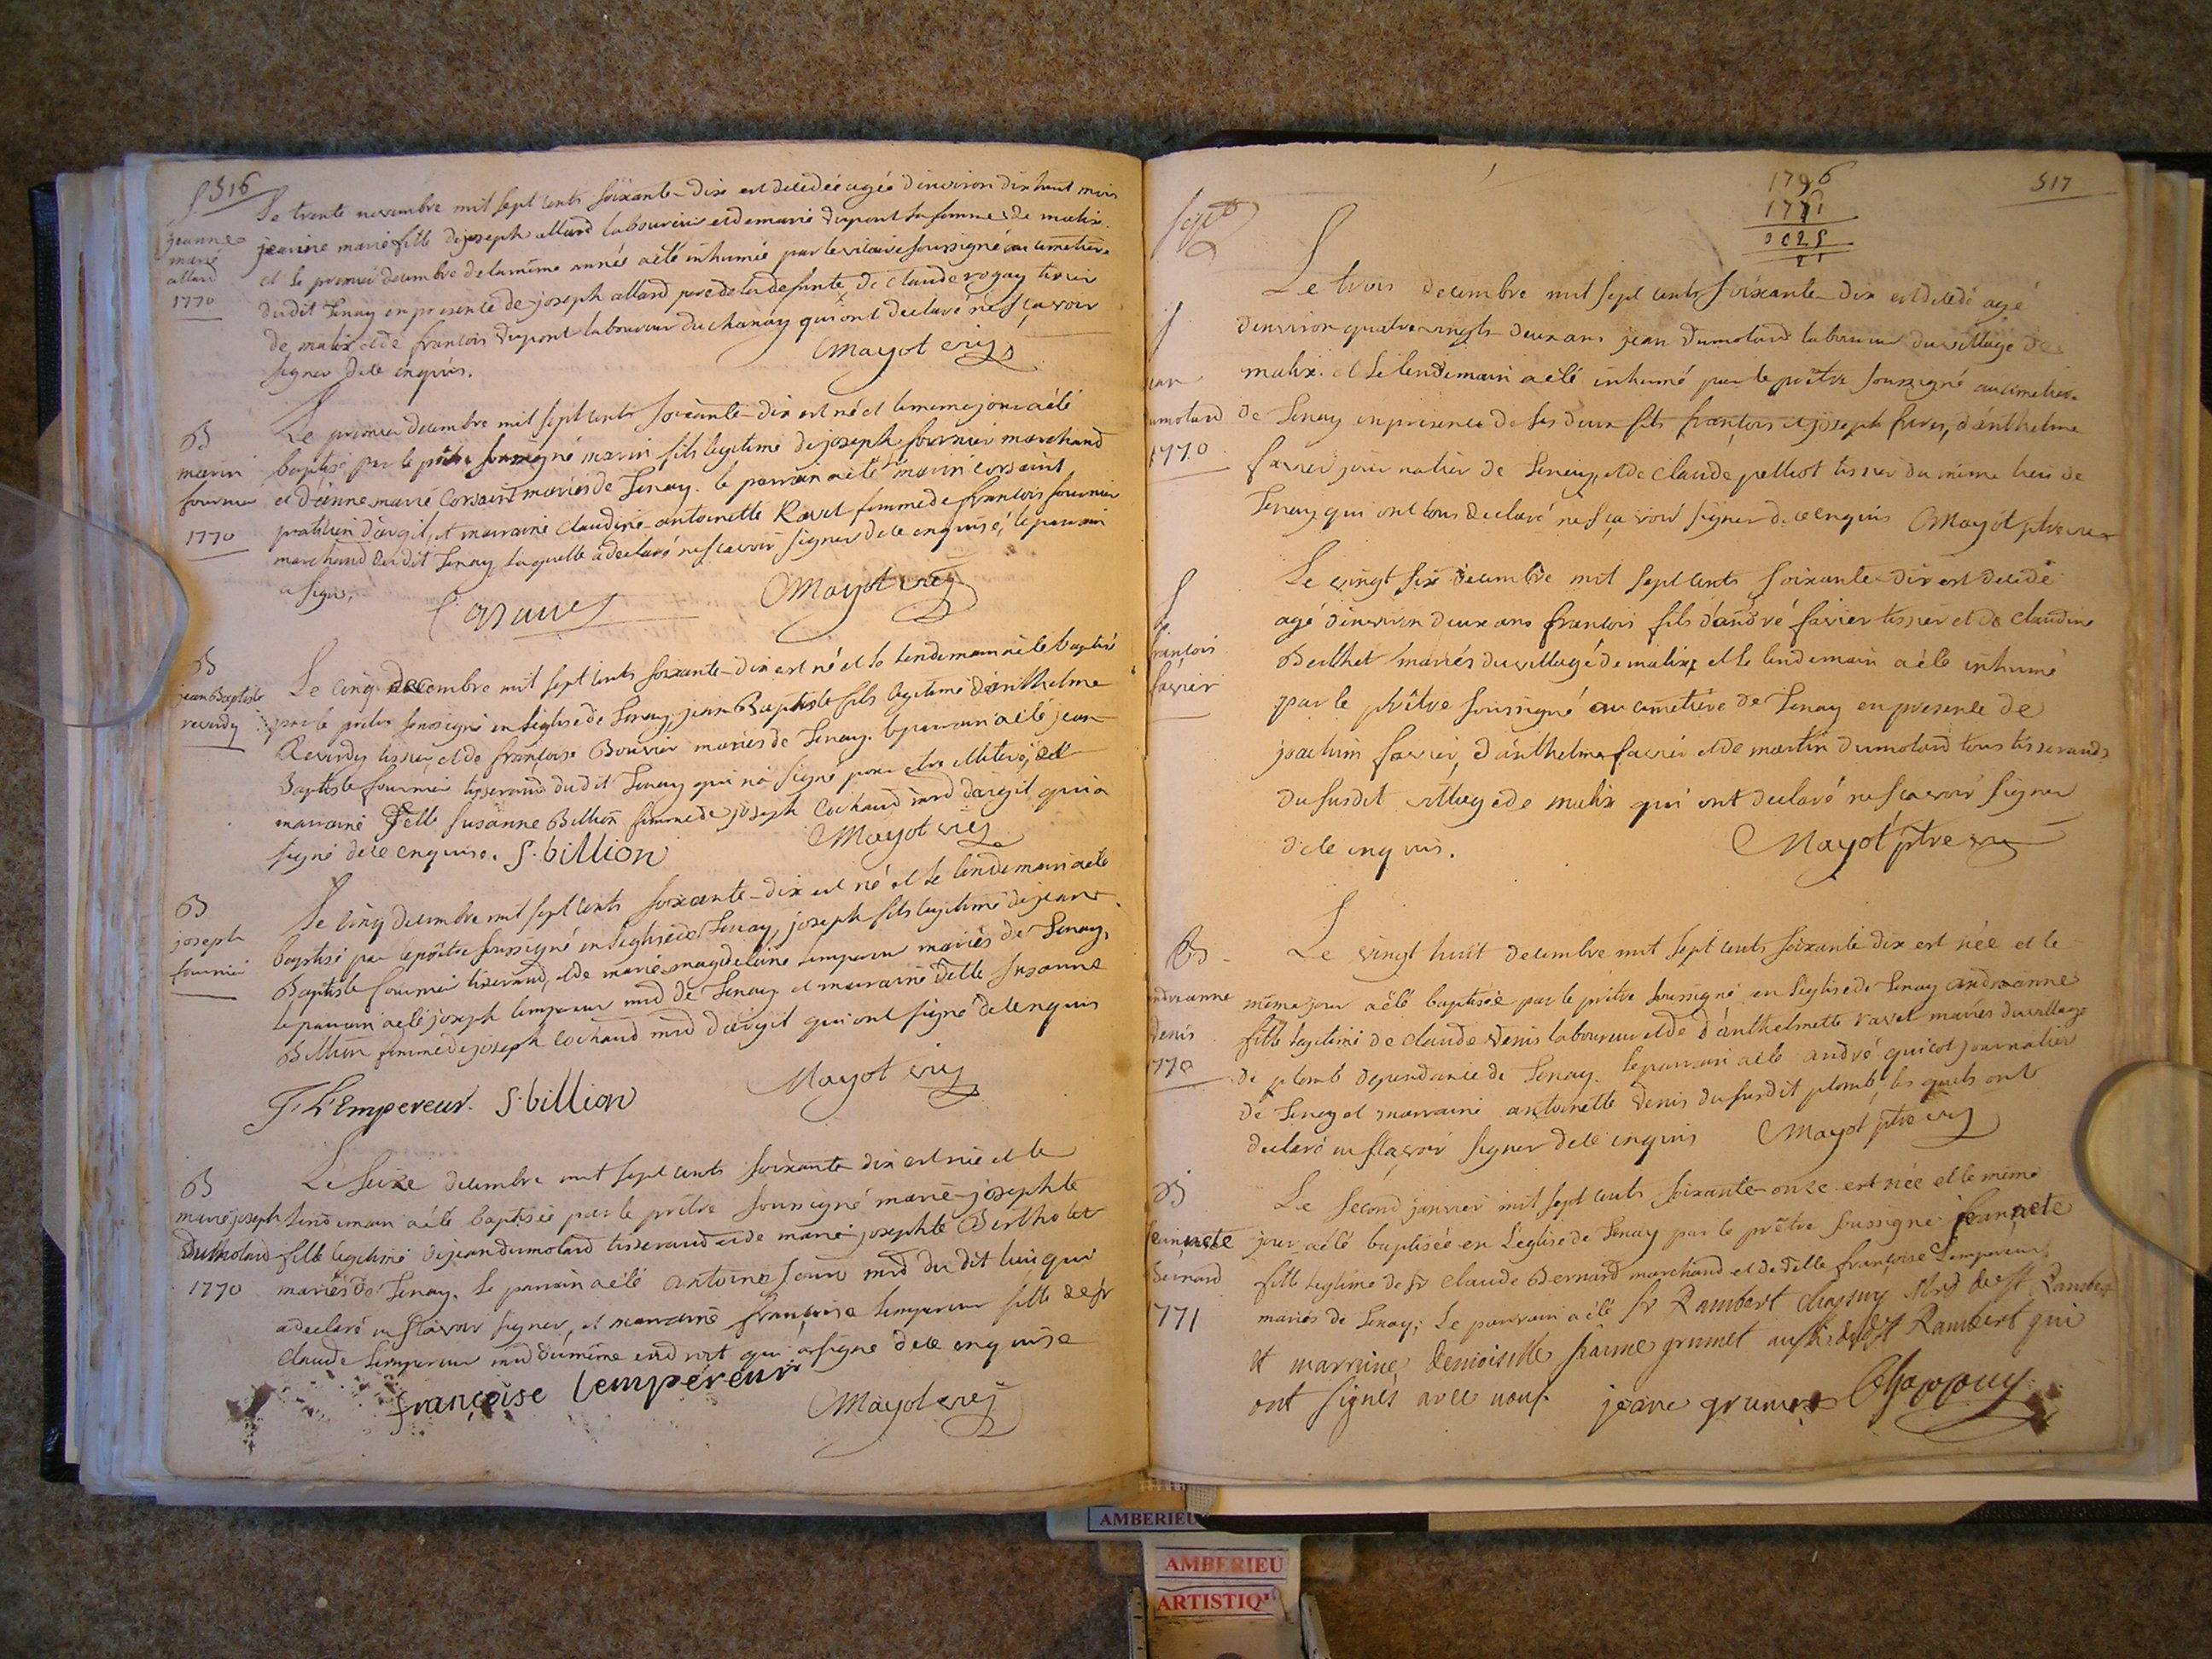 S 316
Le trente novembre mil sept cents soixante-dix est décédée agée d'environ dix huit mois
jeanne marie allard 1770
jeanne marie fille de joseph allard laboureur et de marie dupont sa femme de malix.
et le premier decembre de la même année a été inhumée par le vicaire soussigné au cimetière
dudit Tenay en presence de joseph allard pere de la defunte, de claude rogay tixier
de malix, et de francois dupont laboureur du chanay qui ont declaré ne sçavoir
signer de ce enquis. Mayot vic
B marin fournier 1770
Le premier decembre mil sept cents soixante-dix est né et le meme jour a été
baptisé par le prêtre soussigné marin fils legitime de joseph fournier marchand
et d'anne marie Corsaint mariés de Tenay. le parrain a été marin corsaint
praticien d'argit, et marraine claudine-antoinette Ravet femme de francois fournier
marchand dudit Tenay laquelle a declaré ne scavoir signer de ce enquise, le parrain
a signé. Mayot vic
B jean Baptiste reverdy
Le cinq decembre mil sept cents soixante-dix est né et le lendemain a été baptisé
par le prêtre soussigné en l'eglise de Tenay, jean Baptiste fils legitime d'anthelme
Reverdy tissier, et de françoise Bouvier mariés de Tenay. le parrain a été jean
Baptiste fournier tisserand dudit Tenay qui n'a signé pour etre illiteré, et
marraine delle susanne Billion femme de joseph Cochaud md d'argit qui a
signé de ce enquise. S. billion Mayot vic
B joseph fournier
Le cinq decembre mil sept cents soixante-dix est né et le lendemain a été
baptisé par le prêtre soussigné en l'eglise de Tenay, joseph fils legitime de jean
Baptiste fournier tisserand, et de marie magdelaine lempereur mariés de Tenay,
le parrain a été joseph lempereur md de Tenay et marraine delle Susanne
Billion femme de joseph Cochaud md d'argit qui ont signé de ce enquis
J. L'Empereur. S. billion Mayot vic
B marie joseph Dumolard 1770
Le seize decembre mil sept cents soixante dix est née et le
lendemain a été baptisée par le prêtre soussigné marie-josephte
fille legitime de jean dumolard tisserand et de marie-josephte Bertholet
mariés de Tenay. le parrain a été antoine md dudit lieu qui
a declaré ne sçavoir signer, et marraine françoise lempereur fille de sr
claude lempereur md du même endroit qui a signé de ce enquise
françoise lempéreur Mayot vic
317
1796
1771
0025
25
Le trois decembre mil sept cents soixante-dix est décédé agé
d'environ quatre vingts-deux ans jean dumolard laboureur du village de
malix. et le lendemain a été inhumé par le prêtre soussigné au cimetiere
S jean dumolard 1770
de Tenay en presence de ses deux fils françois et joseph freres, d'anthelme
favier journalier de Tenay, et de claude pelliot tissier du même lieu de
Tenay qui ont tous declaré ne sçavoir signer de ce enquis Mayot ptre vic
S françois favier
Le vingt six decembre mil sept cents soixante-dix est decedé
agé d'environ deux ans francois fils d'andré favier tissier et de claudine
Berthet mariés du village de malix, et le lendemain a été inhumé
par le prêtre soussigné au cimetiére de Tenay en presence de
joachim favier, d'anthelme favier et de martin dumolard tous tisserands
du susdit village de malix qui ont declaré ne scavoir signer
de ce enquis. Mayot ptre vic
B andréanne denis 1770
Le vingt huit decembre mil sept cents soixante dix est née et le
même jour a été baptisée par le prêtre soussigné en l'eglise de Tenay andréanne
fille legitime de claude denis laboureur et de d'anthelmette ravet mariés du village
de plomb dependance de Tenay. le parrain a été andré guicot journalier
de Tenay et marraine antoinette denis du susdit plomb, les quels ont
declaré ne sçavoir signer de ce enquis Mayot ptre vic
B Jeannete Bernard 1771
Le second janvier mil sept cents soixante-onze est née et le même
jour a été baptisée en l'église de Tenay par le prêtre sussigné jeannete
fille legitime de sr claude Bernard marchand et de delle françoise Lempereur
mariés de Tenay; Le parrain a été sr Rambert chappuy de st Rambert
et marraine demoiselle jeanne grumet aussi de st Rambert qui
ont signés avec nous. jeane grumet Chappuy
AMBERIEU
AMBERIEU
ARTISTIQ